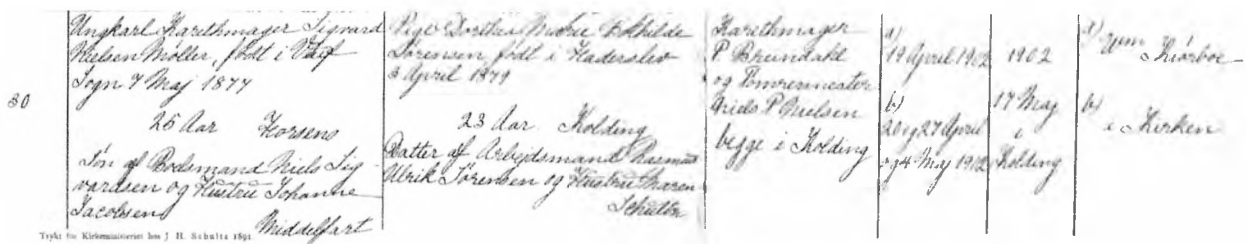 30
Ungkarl Karethmager Sigvard
Nielsen Møller, født i
Sogn 7 Maj 1877
25 Aar Horsens
Søn af Bodsmand Niels Sig
vardsen og Hustru Johanne
Jacobsen
Middelfart
Pige Dorthea Marie Bothilde
Sørensen, født i Haderslev
3 April 1879
23 Aar. Kolding
Datter af Arbejdsmand Rasmus
Ulrik Sørensen og Hustru Maren
Schultz
Karethmager
P. Breindahl
og Tømrermester
Niels P. Nielsen
begge i Kolding
a)
19 April 1902
b)
20 og 27 April
og 4 Maj 1902
1902
17 Maj
i
Kolding
a)
b)
i Kirken
Trykt for Kirkeministeriet hos J. H. Schultz 1891.